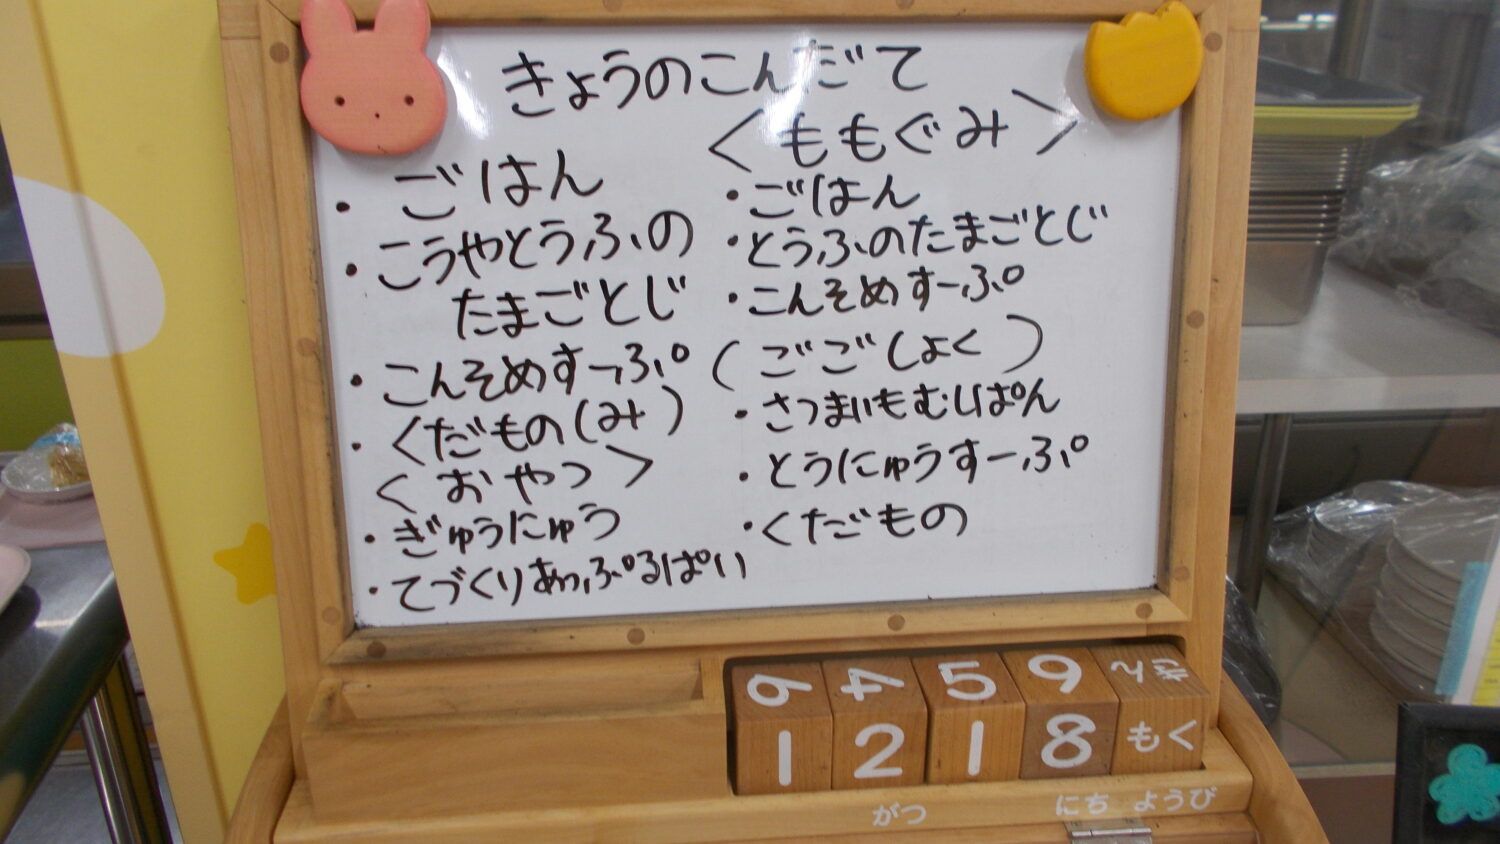 きょうのこんだて
・ごはん
・こうやとうふの
たまごとじ
・こんそめすーぷ
・くだもの(み)
<おやつ>
・ぎゅうにゅう
・てづくりあっぷるぱい
<ももぐみ>
・ごはん
・とうふのたまごとじ
・こんそめすーぷ
(ごごしょく)
・さつまいもむしぱん
・とうにゅうすーぷ
・くだもの
6 4 5 9
1 2 1 8 もく
がつ にち ようび